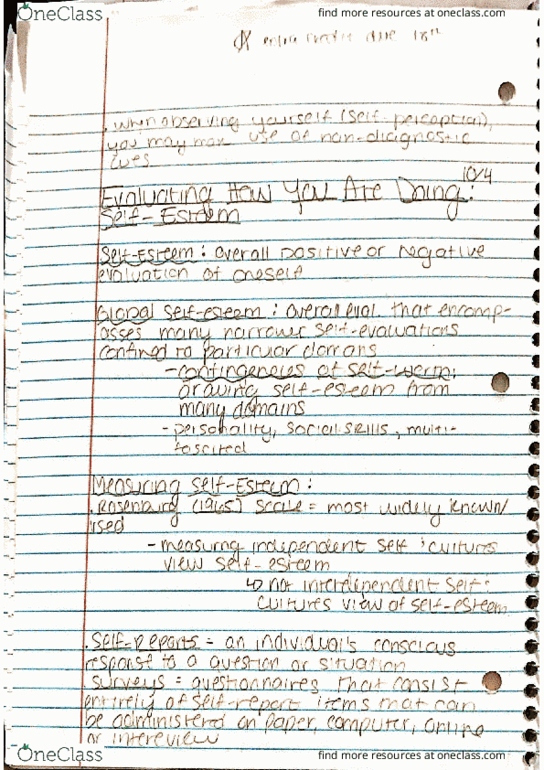 OneClass
find more resources at oneclass.com
extra credit due 18th
. When observing yourself (self-perception),
you may make use of non-diagnostic
cues
10/4
Evaluating How You Are Doing:
Self-Esteem
Self-Esteem : Overall positive or negative
evaluation of oneself
Global Self-esteem : overall eval. that encomp-
asses many narrower self-evaluations
confined to particular domains
- contingencies of self-worth:
drawing self-esteem from
many domains
- personality, social skills, multi-
fascited
Measuring Self-Esteem :
. Rosenburg (1965) Scale = most widely known/
used
- measuring independent self : cultures
view self-esteem
↳ not interdependent self :
cultures view of self-esteem
. Self-Reports = an individual's conscious
response to a question or situation
surveys = questionnaires that consist
entirely of self-report items that can
be administered on paper, computer, online
or intereview
OneClass
find more resources at oneclass.com